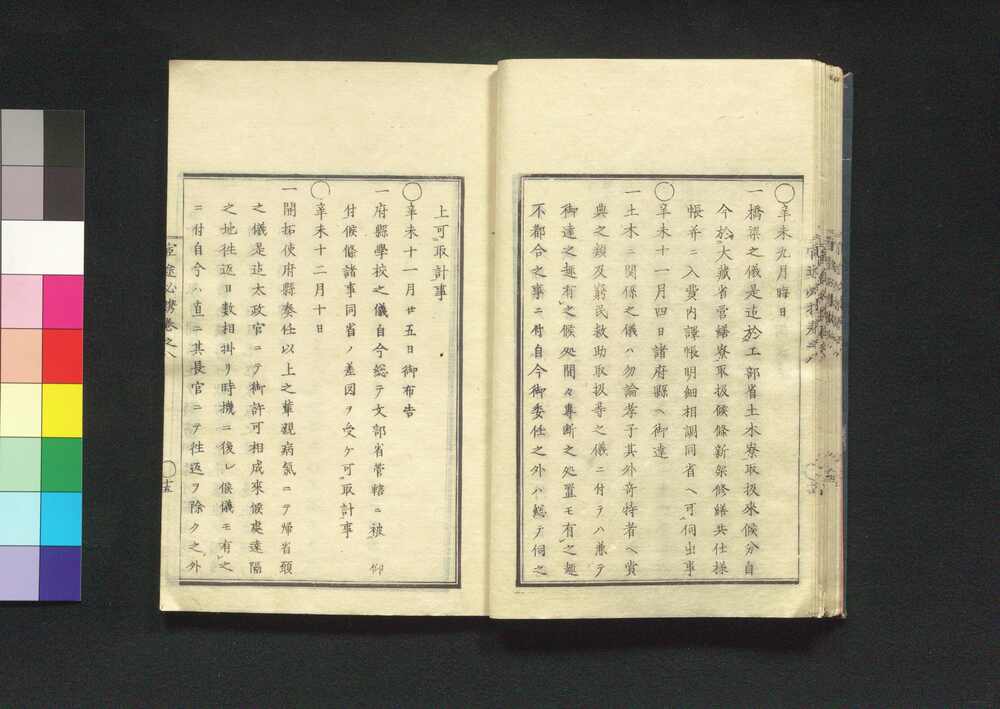 ○辛未九月晦日
一橋梁之儀是迄於工部省土木寮取扱來候分自
今於大藏省營繕寮取扱候條新架修繕共仕様
帳并ニ入費内譯帳明細相調同省ヘ可伺出事
○辛未十一月四日諸府縣ヘ御達
一土木ニ関係之儀ハ勿論孝子其外竒特者ヘ賞
典之類及窮民救助取扱等之儀ニ付テハ兼テ
御達之趣有之候処間々專断之処置モ有之趣
不都合之事ニ付自今御委任之外ハ総テ伺之
上可取計事
○辛未十一月廿五日御布告
一府縣學校之儀自今総テ文部省管轄ニ被 仰
付候條諸事同省ノ差図ヲ受ケ可取計事
○辛未十二月十日
一開拓使府縣奏任以上之輩親病氣ニテ帰省願
之儀是迄太政官ニテ御許可相成來候處遠隔
之地往返日數相掛リ時機ニ後レ候儀モ有之
ニ付自今ハ直ニ其長官ニテ往返ヲ除ク之外
官途必携巻之八
○十五